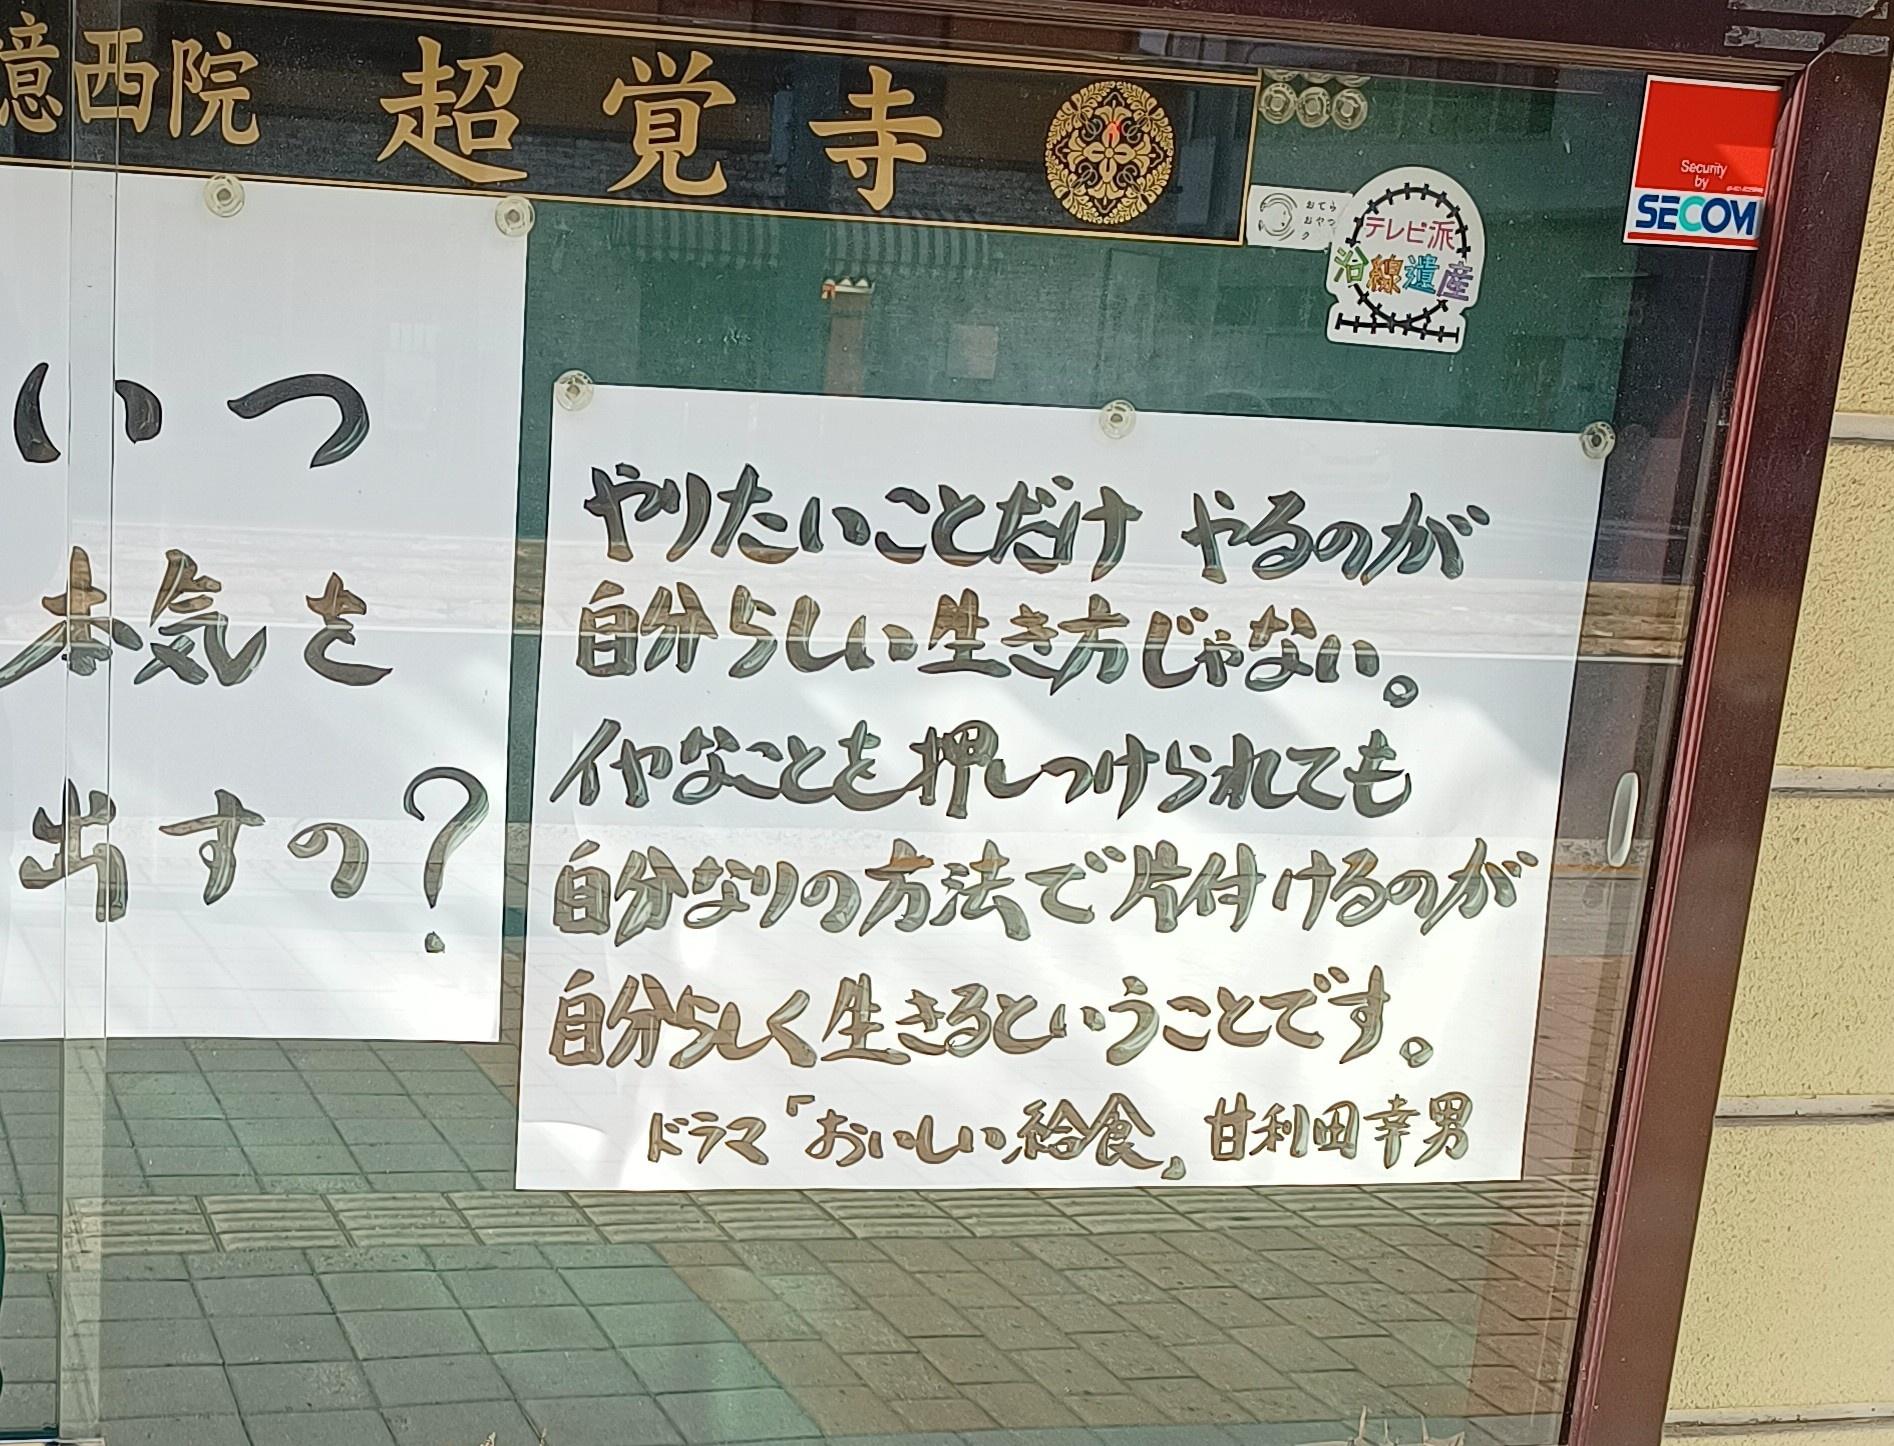 憶西院 超覚寺
おてら
おやつ
ク
テレビ派
沿線遺産
Security
by
SECOM
いつ
本気を
出すの?
やりたいことだけ やるのが
自分らしい生き方じゃない。
イヤなことを押しつけられても
自分なりの方法で片付けるのが
自分らしく生きるということです。
ドラマ「おいしい給食」甘利田幸男